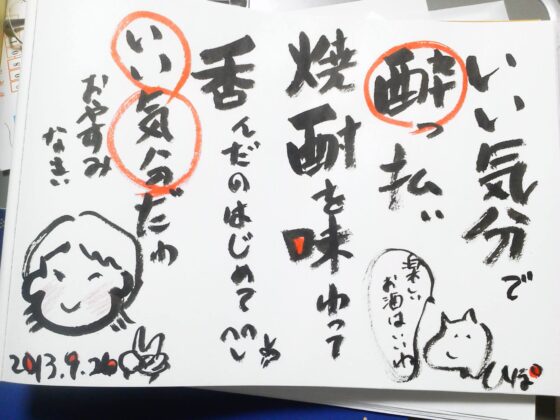 いい気分で
酔っ払い
焼酎を味わって
呑んだのはじめて
いい気分だわ
おやすみ
なさい
楽しい
お酒はいいわ
2013.9.26